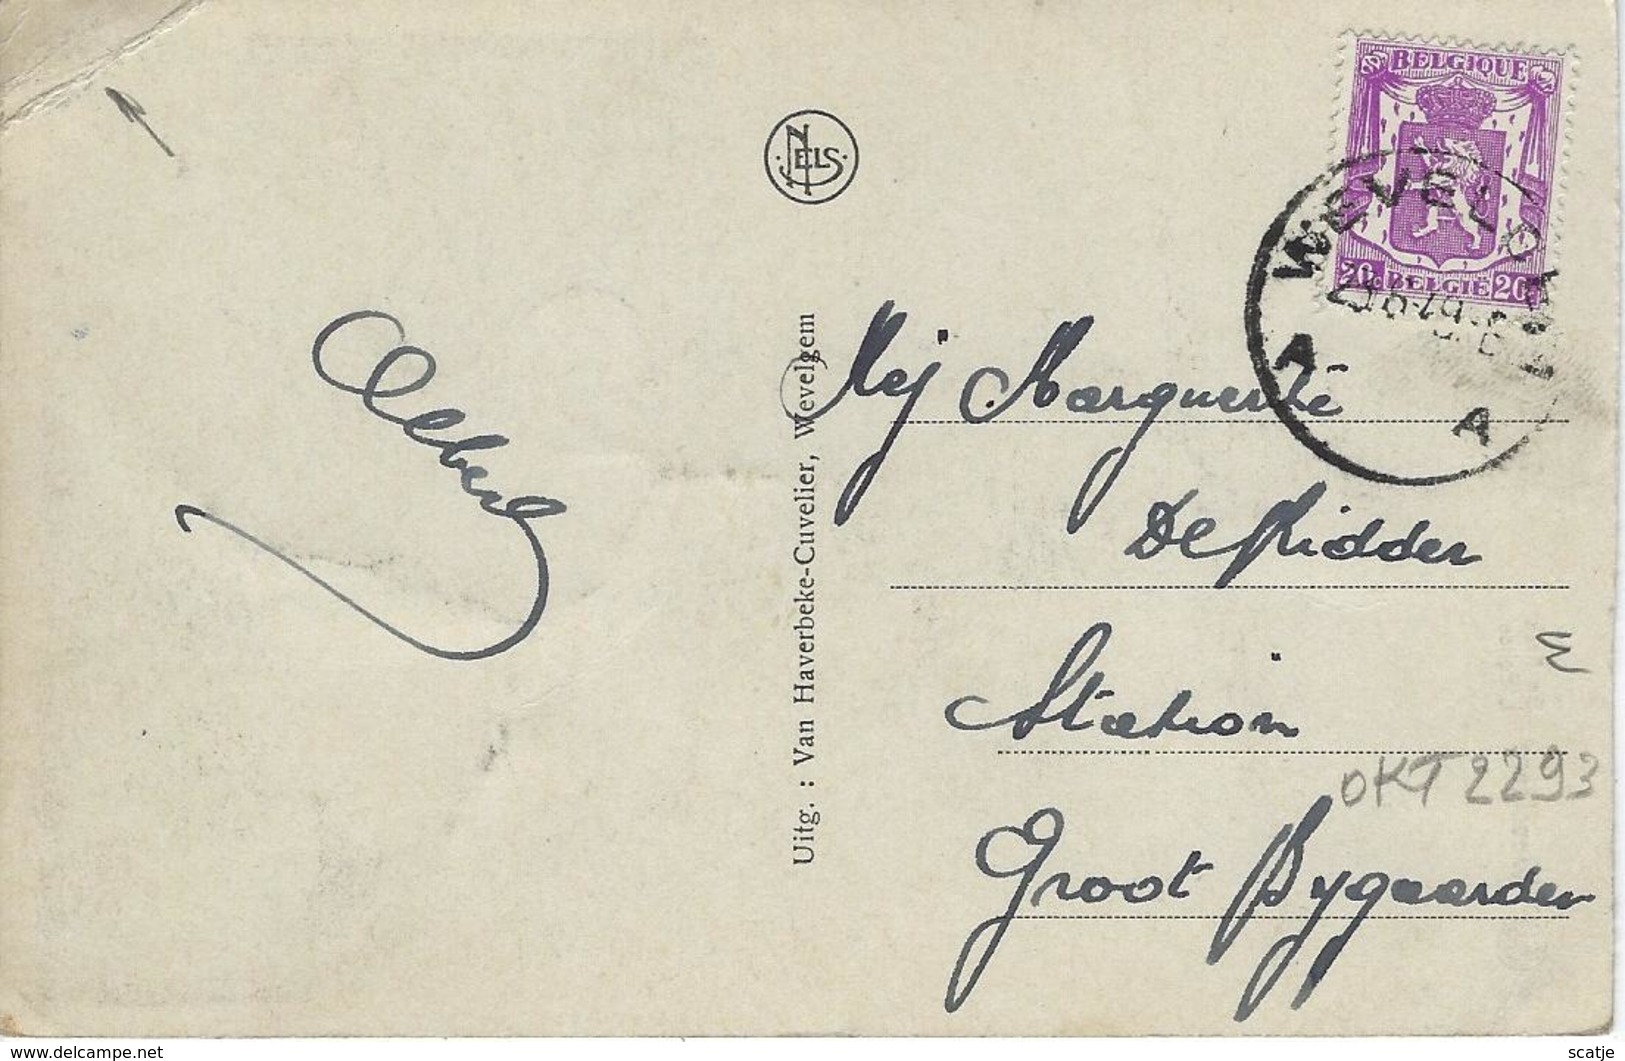 BELGIQUE
20c BELGIE 20c
WEVELGEM
A A
NELS
Albert
Uitg. : Van Haverbeke-Cuvelier, Wevelgem
Mej Marguerite
De Ridder
Station
Groot Bygaarden
OKT 2293
www.delcampe.net
scatje